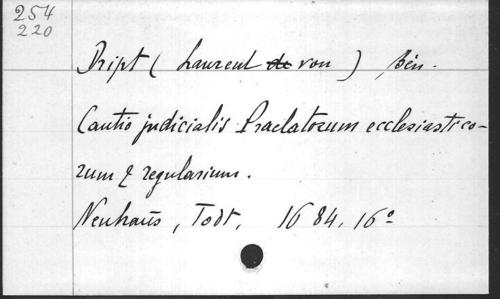 254
220
Dript (Laurent de von) bén.
Cautio judicialis Praelatorum ecclesiastico-
rum & regularium.
Neuhaus, Todt, 1684. 16°